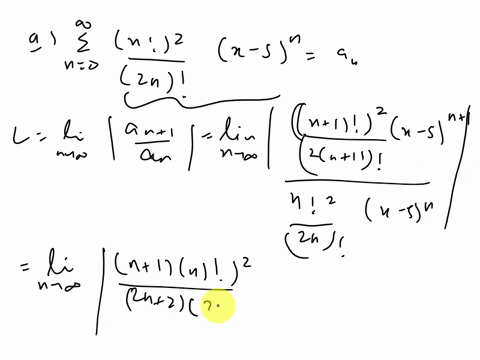 a) ∞ Σ n=0 (n!)² / (2n)! (x-5)ⁿ = aₙ
L = lim n→∞ | aₙ₊₁ / aₙ | = lim n→∞ | ((n+1)!)² / (2(n+1))! (x-5)ⁿ⁺¹ / n!² / (2n)! (x-5)ⁿ |
= lim n→∞ | (n+1)(n)!)² / (2n+2)(